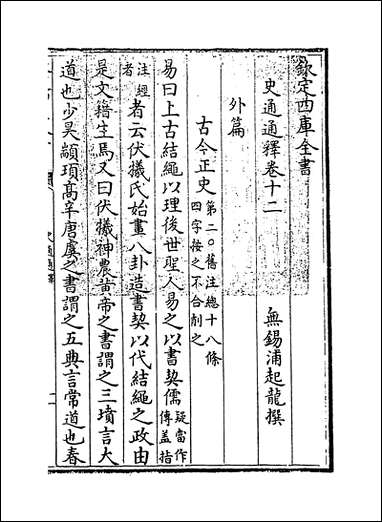 欽定四庫全書
史通通釋卷十二
無錫浦起龍撰
外篇
古今正史第二○舊注總十八條四字按之不合削之
易曰上古結繩以理後世聖人易之以書契儒疑當作傳蓋指
注經者者云伏犧氏始畫八卦造書契以代結繩之政由
是文籍生焉又曰伏犧神農黃帝之書謂之三墳言大
道也少昊顓頊高辛唐虞之書謂之五典言常道也春
史通通釋
一